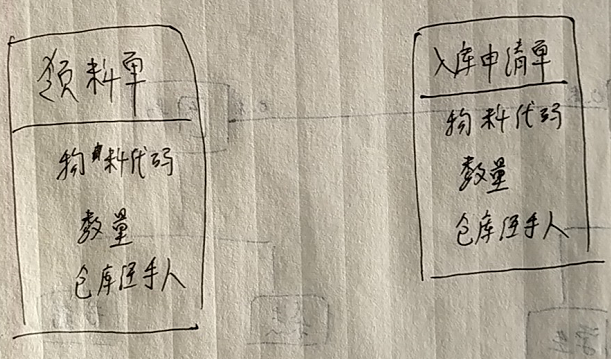 领料单
物料代码
数量
仓库经手人
入库申请单
物料代码
数量
仓库经手人